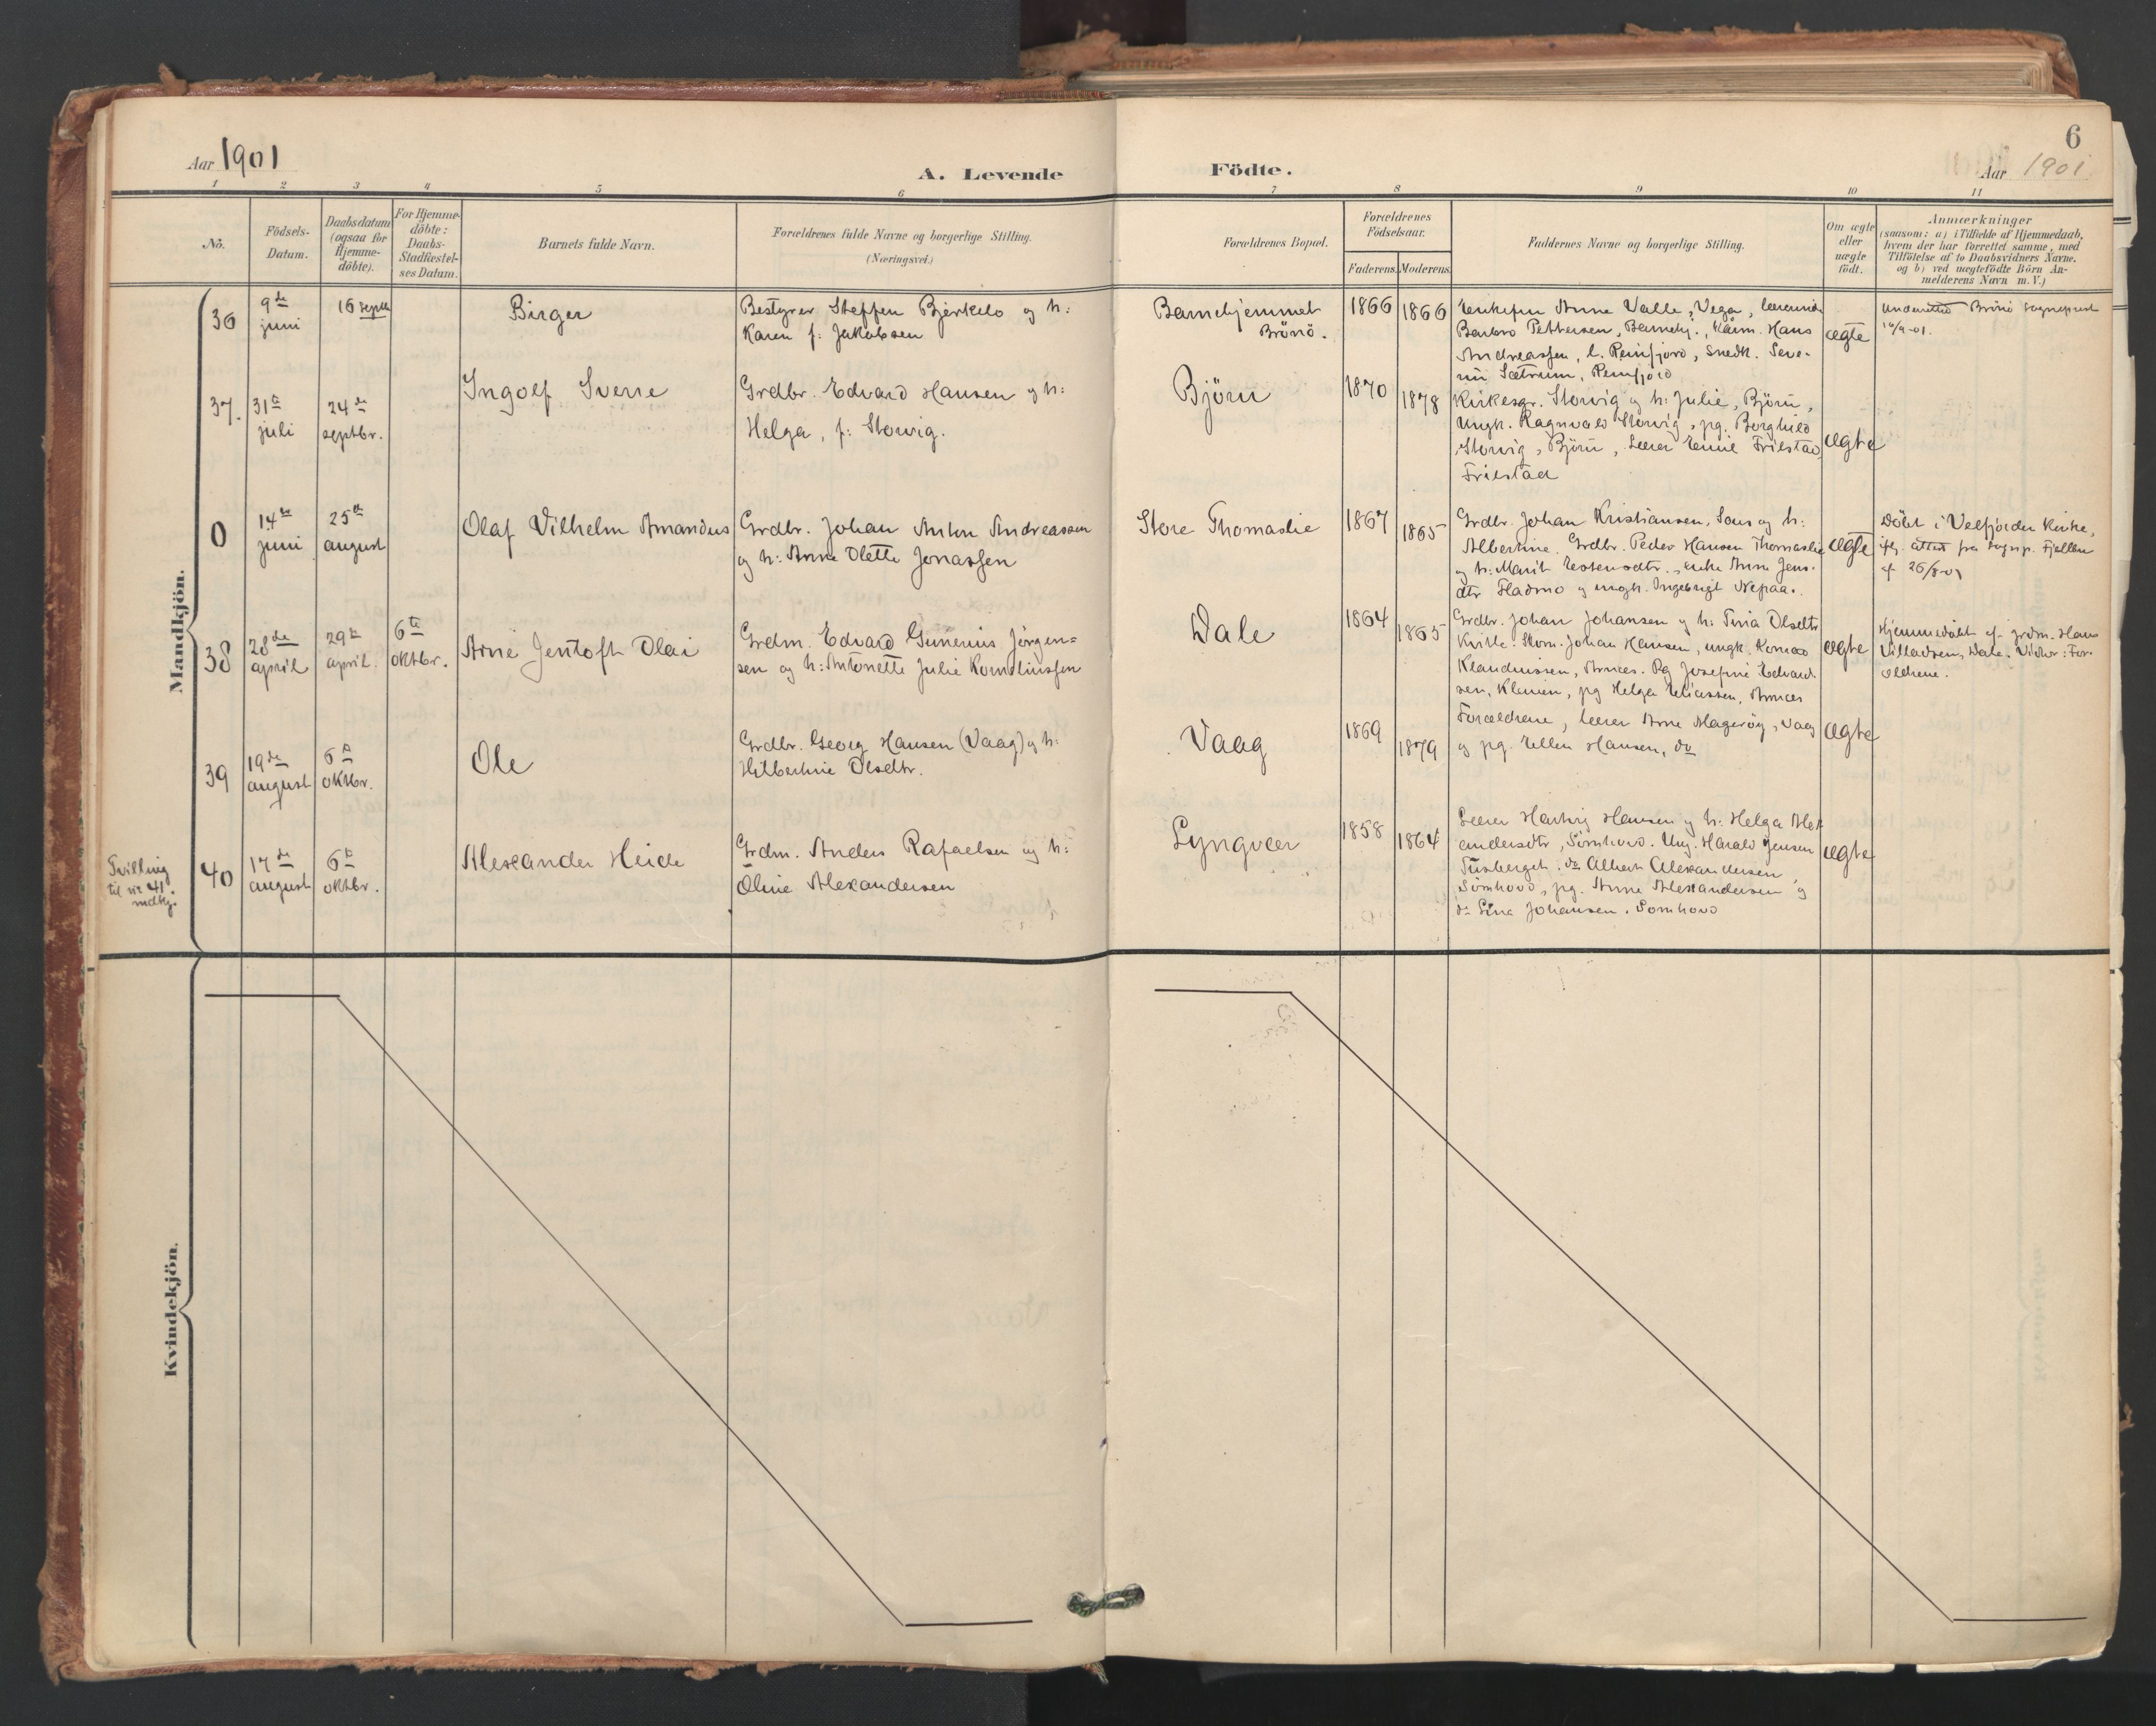 Aar 1901
A. Levende
Födte.
6
Aar 1901
1 2 3 4 5 6 7 8 9 10 11
No.
Födsels-
Datum.
Daabsdatum
(ogsaa for
Hjemme-
döbte).
For Hjemme-
döbte:
Daabs-
Stadfæstel-
ses Datum.
Barnets fulde Navn.
Forældrenes fulde Navne og borgerlige Stilling.
(Næringsvei.)
Forældrenes Bopæl.
Forældrenes
Födselsaar.
Faderens. Moderens.
Faddernes Navne og borgerlige Stilling.
Om ægte
eller
uægte
födt.
Anmærkninger
(saasom: a) i Tilfælde af Hjemmedaab,
hvem der har forrettet samme, med
Tilföielse af to Daabsvidners Navne.
og b) ved uægtefödte Börn An-
melderens Navn m.V.)
Mandkjön.
36
9de
juni
16 septb
Birger
Bestyrer Steffen Bjerkelo og h:
Karen f: Jakobsen
Barnehjemmet
Brönö.
1866
1866
Enkefru Anna Valle, Vega,
Barbro Pettersen, Barnehj., Hans
Andreassen, l. Reinfjord, snedk. Seve-
rin Sætrum, Reinfjord
ægte
Brönö sogneprest
37.
31te
juli
24de
septbr.
Ingolf Sverre
Grdbr. Edvard Hansen og h:
Helga, f: Storvig.
Björn
1870
1878
Kirkesgr. Storvig og h: Julie, Björn,
Ungk. Ragnvald Storvig, pg. Borghild
Storvig, Björn, Lærer Emil Frilstad,
Frilstad
ægte
0
14de
juni
25de
august
Olaf Vilhelm Amandus
Grdbr. Johan Anton Andreassen
og h: Anna Olette Jonassen
Store Thomaslie
1867
1865
Grdbr. Johan Kristiansen, Saus og h:
Albertine. Grdbr. Peder Hansen Thomaslie
og h: Marit Estensdtr., enke Anna Jens-
dtr Fladmo og ungk. Ingebrigt Nepaa.
ægte
Döbt i Velfjorden Kirke,
iflg. attest fra sogнp. Fjellan
af 26/8-01
38
28de
april
29de
april.
6te
oktbr.
Arne Jentoft Olai
Grdm. Edvard Gunerius Jörgen=
sen og h: Antonette Julie Korneliussen
Dale
1864
1865
Grdbr. Johan Johansen og h: Tina Olsdtr
Johan Hansen, ungk. Konrad
Klaudiussen, Arnæs. Pg Josefine Edvard-
sen, pg Helga Eliassen, Arnæs
ægte
Hjemmedöbt af grdm. Hans
Villadsen, Dale. Vidner: For-
ældrene.
39
19de
august
6te
oktbr.
Ole
Grdbr. Georg Hansen (Vaag) og h:
Hilbertine Olsdtr.
Vaag
1869
1879
Forældrene, lærer Arne Mageröy, Vaag
og pg. Ellen Hansen, do
ægte
Tvilling
til nr 41.
mdkj.
40
17de
august
6te
oktbr.
Alexander Heide
Grdm. Anders Rafaelsen og h:
Oline Alexandersen
Lyngvær
1858
1864
Lærer Hartvig Hansen og h: Helga Alex
andersdtr, Sömhovd. Ung. Harald Jensen
Tusberget. do Albert Alexandersen,
Sömhovd, pg. Anna Alexandersen og
do Lina Johansen. Somhovd
ægte
Kvindekjön.